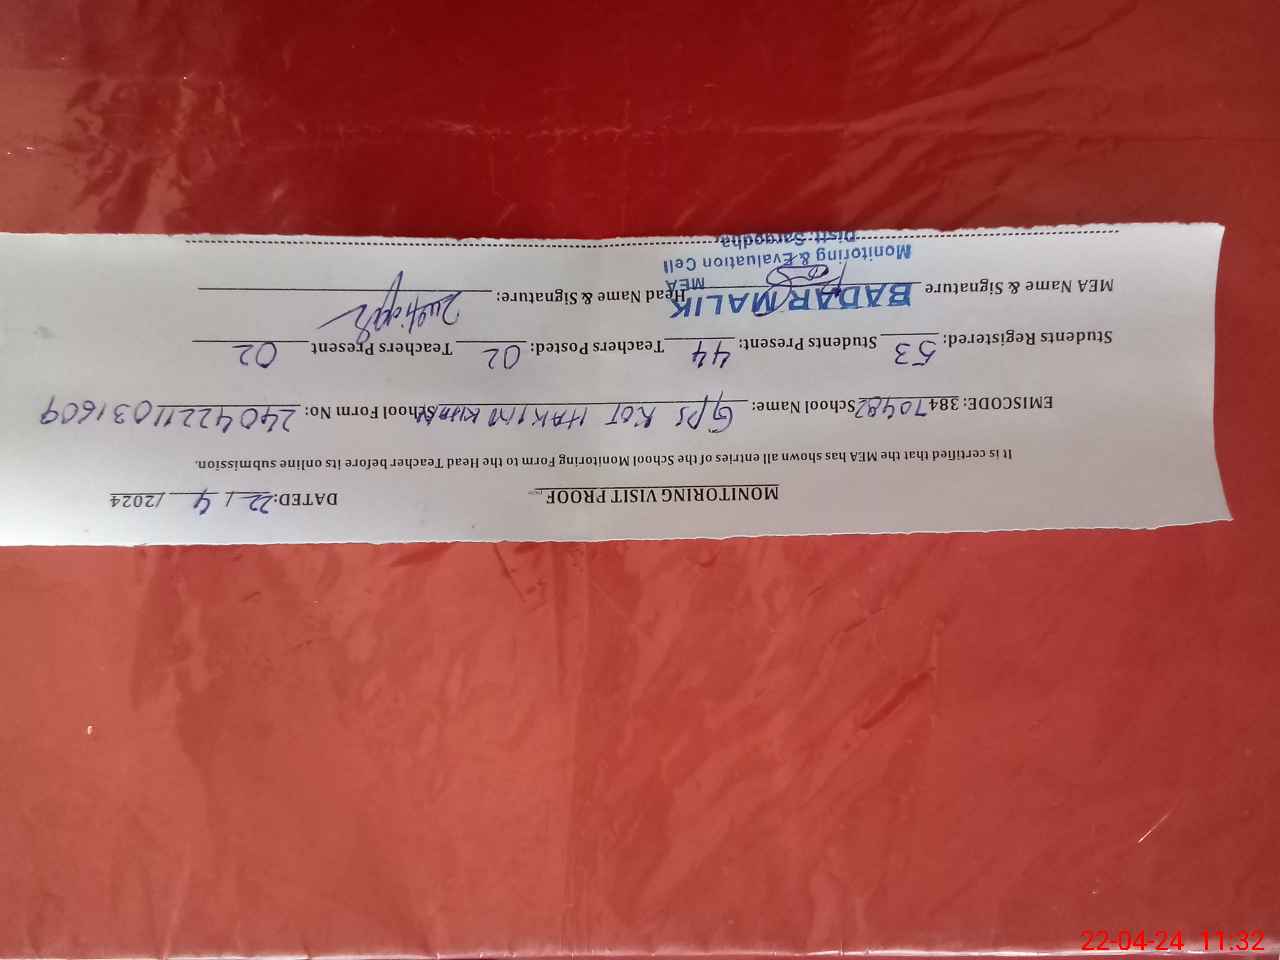 MONITORING VISIT PROOF DATED: 22 / 4 / 2024
It is certified that the MEA has shown all entries of the School Monitoring Form to the Head Teacher before its online submission.
EMISCODE: 38470482 School Name: GPS KOT HAKIM KHAN School Form No: 24042211031609
Students Registered: 53 Students Present: 44 Teachers Posted: 02 Teachers Present 02
MEA Name & Signature Head Name & Signature:
BADAR MALIK
MEA
Monitoring & Evaluation Cell
Distt. Sargodha
22-04-24 11:32